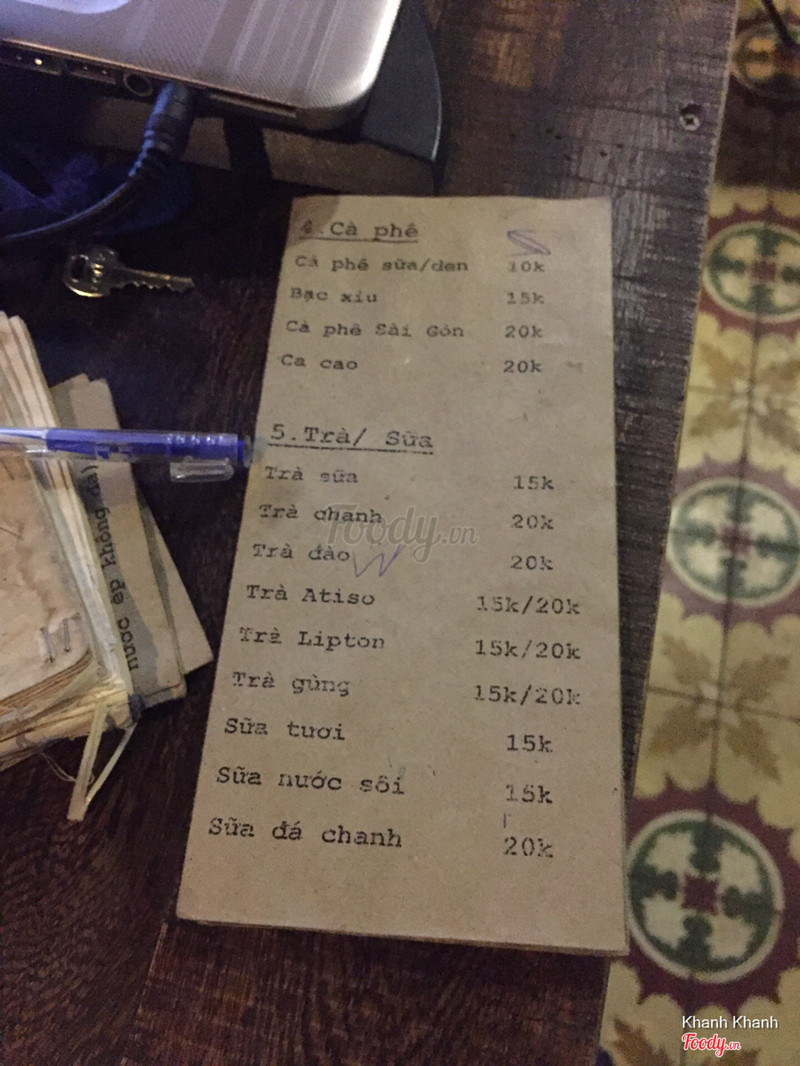 4.Cà phê
Cà phê sữa/đen 10k
Bạc xỉu 15k
Cà phê Sài Gòn 20k
Ca cao 20k
5.Trà/ Sữa
Trà sữa 15k
Trà chanh 20k
Trà đào 20k
Trà Atiso 15k/20k
Trà Lipton 15k/20k
Trà gừng 15k/20k
Sữa tươi 15k
Sữa nước sôi 15k
Sữa đá chanh 20k
nước ép không đá)
Foody.vn
Khanh Khanh
Foody.vn